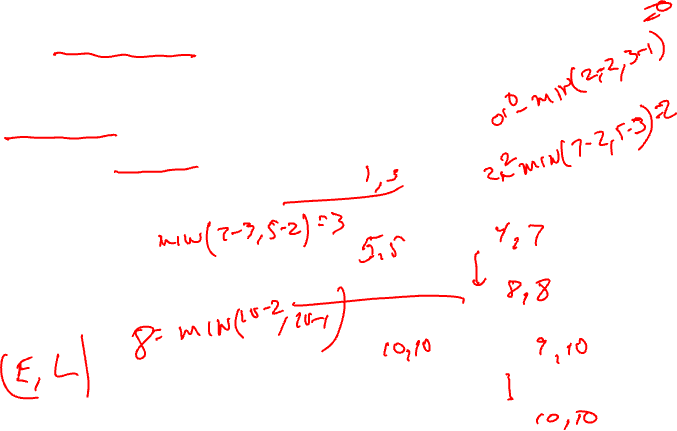 =0
0 = min(2-2, 3-1)
2 = min(7-2, 5-3) = 2
1, 3
min(7-3, 5-2) = 3
5, 5
4, 7
8, 8
8 = min(10-2, 10-1)
10, 10
9, 10
(E, L)
10, 10